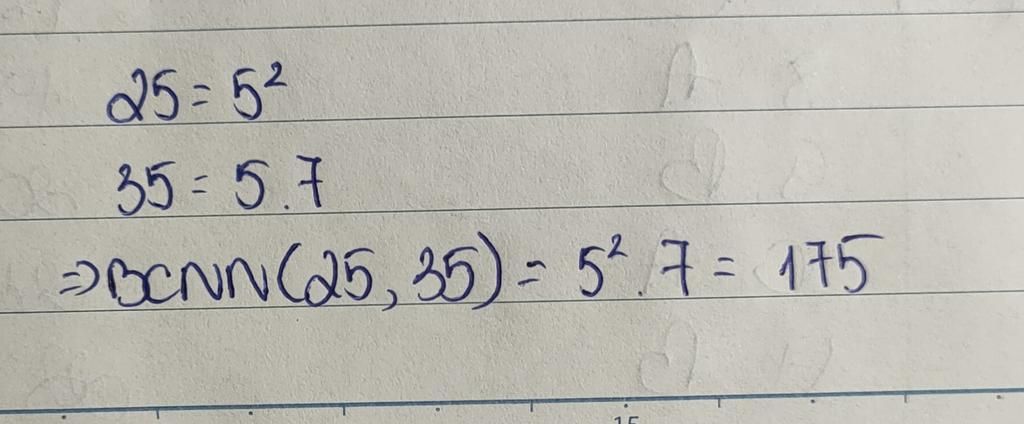 25 = 5²
35 = 5.7
⇒ BCNN(25, 35) = 5².7 = 175
15